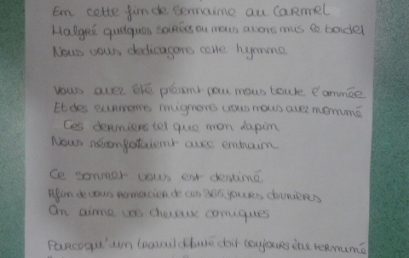 En cette fin de semaine au Carmel
Malgré quelques soirées ou nous avons mis le bordel
Nous vous dédicaçons cette hymne
Vous avez été présent pour nous toute l'année
Et des surnoms mignons vous nous avez nommé
Ces derniers tel que mon lapin
Nous réconfortaient avec entrain
Ce sonnet vous est destiné
Afin de vous remercier de ces 365 jours derniers
On aime vos cheveux comiques
Parce qu'un travail débuté doit toujours être terminé